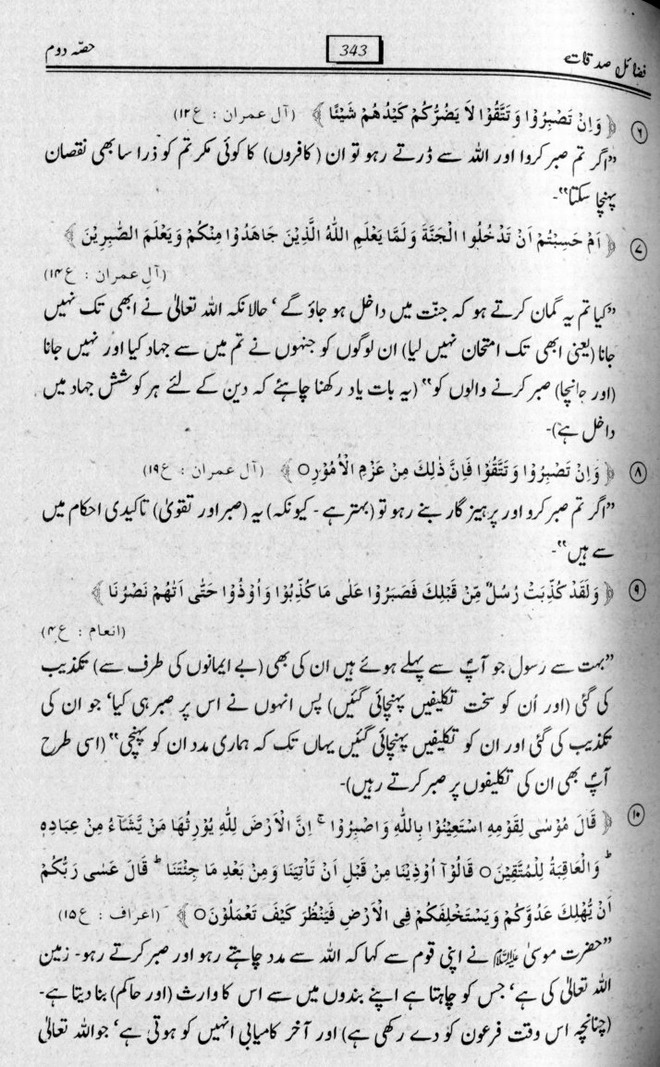 فضائل صدقات
343
حصّہ دوم
۶ ﴿ وَاِنْ تَصْبِرُوْا وَتَتَّقُوْا لَا يَضُرُّكُمْ كَيْدُهُمْ شَيْئًا ﴾ (آل عمران : ع۱۲)
”اگر تم صبر کرو ا اور اللہ سے ڈرتے رہو تو ان (کافروں) کا کوئی مکر تم کو ذرا سا بھی نقصان
پہنچا سکتا“۔
۷ ﴿ اَمْ حَسِبْتُمْ اَنْ تَدْخُلُوا الْجَنَّةَ وَلَمَّا يَعْلَمِ اللّٰهُ الَّذِيْنَ جَاهَدُوْا مِنْكُمْ وَيَعْلَمَ الصّٰبِرِيْنَ ﴾
(آل عمران : ع۱۴)
”کیا تم یہ گمان کرتے ہو کہ جنّت میں داخل ہو جاؤ گے‘ حالانکہ اللہ تعالیٰ نے ابھی تک نہیں
جانا (یعنی ابھی تک امتحان نہیں لیا) ان لوگوں کو جنہوں نے تم میں سے جہاد کیا اور نہیں جانا
(اور جانچا) صبر کرنے والوں کو“ (یہ بات یاد رکھنا چاہئے کہ دین کے لئے ہر کوشش جہاد میں
داخل ہے)۔
۸ ﴿ وَاِنْ تَصْبِرُوْا وَتَتَّقُوْا فَاِنَّ ذٰلِكَ مِنْ عَزْمِ الْاُمُوْرِ○ ﴾ (آل عمران : ع۱۹)
”اگر تم صبر کرو اور پرہیز گار بنے رہو تو (بہتر ہے - کیونکہ) یہ (صبر اور تقویٰ) تاکیدی احکام میں
سے ہیں“۔
۹ ﴿ وَلَقَدْ كُذِّبَتْ رُسُلٌ مِّنْ قَبْلِكَ فَصَبَرُوْا عَلٰى مَا كُذِّبُوْا وَاُوْذُوْا حَتّٰى اَتٰهُمْ نَصْرُنَا ﴾
(انعام : ع۴)
”بہت سے رسول جو آپؐ سے پہلے ہوئے ہیں ان کی بھی (بے ایمانوں کی طرف سے) تکذیب
کی گئی (اور اُن کو سخت تکلیفیں پہنچائی گئیں) پس انہوں نے اس پر صبر ہی کیا‘ جو ان کی
تکذیب کی گئی اور ان کو تکلیفیں پہنچائی گئیں یہاں تک کہ ہماری مدد ان کو پہنچی“ (اسی طرح
آپؐ بھی ان کی تکلیفوں پر صبر کرتے رہیں)۔
۱۰ ﴿ قَالَ مُوْسٰى لِقَوْمِهِ اسْتَعِيْنُوْا بِاللّٰهِ وَاصْبِرُوْا ۚ اِنَّ الْاَرْضَ لِلّٰهِ يُوْرِثُهَا مَنْ يَّشَآءُ مِنْ عِبَادِهٖ
ؕ وَالْعَاقِبَةُ لِلْمُتَّقِيْنَ○ قَالُوْٓا اُوْذِيْنَا مِنْ قَبْلِ اَنْ تَاْتِيَنَا وَمِنْ بَعْدِ مَا جِئْتَنَا ؕ قَالَ عَسٰى رَبُّكُمْ
اَنْ يُّهْلِكَ عَدُوَّكُمْ وَيَسْتَخْلِفَكُمْ فِى الْاَرْضِ فَيَنْظُرَ كَيْفَ تَعْمَلُوْنَ○ ﴾ (اعراف : ع۱۵)
”حضرت موسیٰ علیہ السلام نے اپنی قوم سے کہا کہ اللہ سے مدد چاہتے رہو اور صبر کرتے رہو- زمین
اللہ تعالیٰ کی ہے‘ جس کو چاہتا ہے اپنے بندوں میں سے اس کا وارث (اور حاکم) بنا دیتا ہے-
(چنانچہ اس وقت فرعون کو دے رکھی ہے) اور آخر کامیابی انہیں کو ہوتی ہے‘ جو اللہ تعالیٰ